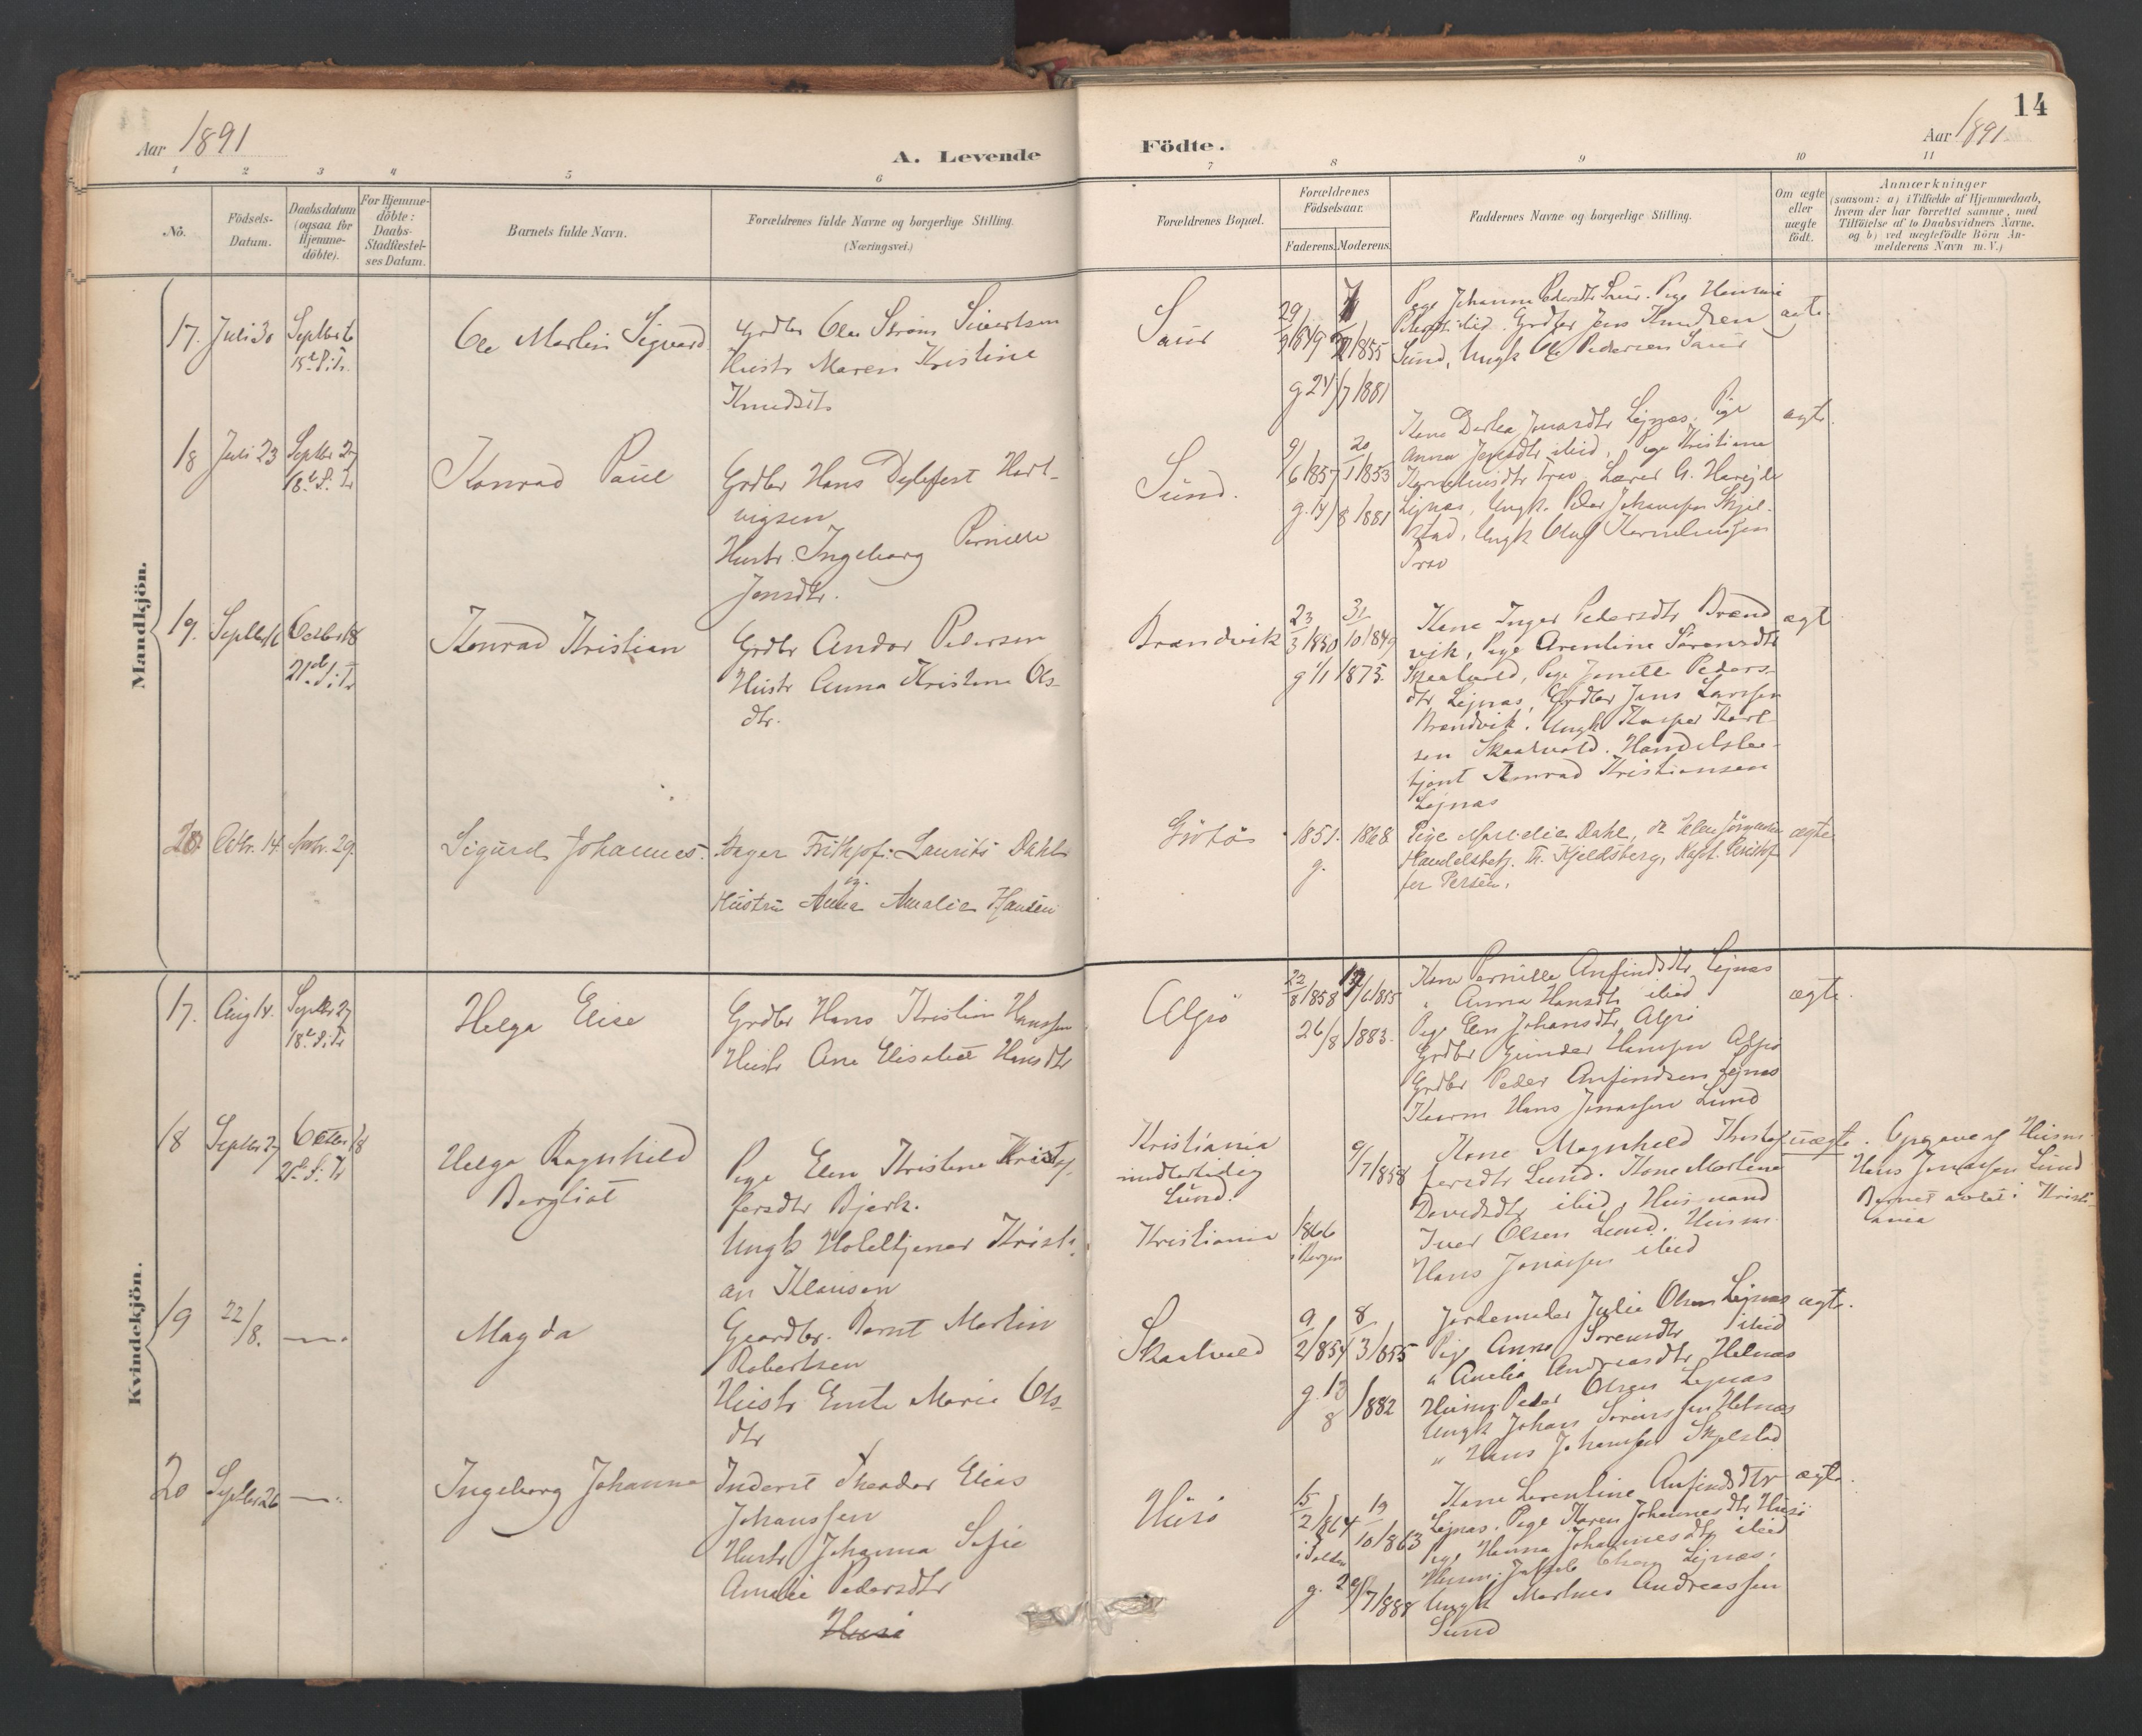 14
Aar 1891
A. Levende
Födte.
Aar 1891
1 2 3 4 5 6 7 8 9 10 11
No.
Födsels-
Datum.
Daabsdatum
(ogsaa for
Hjemme-
döbte).
For Hjemme-
döbte:
Daabs-
Stadfæstel-
ses Datum.
Barnets fulde Navn.
Forældrenes fulde Navne og borgerlige Stilling.
(Næringsvei.)
Forældrenes Bopæl.
Forældrenes
Födselsaar.
Faderens. Moderens.
Faddernes Navne og borgerlige Stilling.
Om ægte
eller
uægte
födt.
Anmærkninger
(saasom: a) i Tilfælde af Hjemmedaab,
hvem der har forrettet samme, med
Tilföielse af to Daabsvidners Navne,
og b) ved uægtefödte Börn An-
melderens Navn m. V.)
Mandkjön.
17. Juli 30 Septbr 6
15de S. Tr.
Ole Martin Sigvard
Grdbr Ole Strøm Sivertsen
Hustr Maren Kristine
Knudsdtr
Saur
29
9/1849 2/1855
g 24/7 1881
Pige Johanna Pedersdtr Saur. Pige Hansine
Pedersdtr ibid. Grdbr Jens Knudsen
Sund, Ungk Ole Pedersen Saur
ægte.
18 Juli 23 Septbr 27
18de S. Tr
Konrad Paul
Grdbr Hans Detlefsen Hart-
vigsen
Hustr. Ingeborg Pernille
Jonsdtr.
Sund.
9/6 1857 20/1 1853
g. 14/8 1881
Kone Dorthea Jonasdtr Leines. Pige
Anna Jensdtr ibid, Pige Kristiane
Korneliusdtr Frav. Lærer G.
Leines, Ungk. Peder Johansen Skjel-
stad, Ungk Oluf Korneliussen
ægte
19. Septbr 16 Octbr 18
21de S. Tr
Konrad Kristian
Grdbr Andor Pedersen
Hustr Anna Kristine Ols-
dtr.
Brændvik
23
3/1850 31
10/1849
g 1/1 1873.
Kone Inger Pedersdtr Brænd-
vik, Pige Arentine Sørensdtr
Skaalvold, Pige Jonette Peders-
dtr Leines, Grdbr Jens Larsen
Brændvik. Ungk Kasper Karl-
sen Skaalvold. Handelsbe-
tjent Konrad Kristiansen
Leines
ægte
20 Octbr. 14. Novbr. 29.
Sigurd Johannes.
Bager Frithjof Laurits Dahl
Hustru Anna Amalie Hansen
Givtø
1851. 1868
g.
Pige Marselie Dahl, do Helene Jørgensen
Handelsbetj. Th. Kjeldsberg, Kapt. Kristof-
fer Persen.
ægte
Kvindekjön.
17. Aug 14. Septbr 27
18de S. Tr
Helga Elise
Grdbr Hans Kristian Hanssen
Hustr Ane Elisabet Hansdtr
Alsjø
22
8/1858
26/8 1883.
Kone Pernille Anfindsdtr Leines
" Anna Hansdtr ibid
Pige Elen Johansdtr Alsjø
Grdbr Gunder Hansen Alsjø
Grdbr Peder Anfindsen Leines
Hans Jonassen Lund
ægte.
18 Septbr 27 Octbr 18
21de S. Tr
Helga Ragnhild
Bergliot
Pige Elen Kristine Kristof-
fersdtr Bjerk.
Ungk Hoteltjener Kristi-
an Klausen
Kristiania
midlertidig
Lund.
Kristiania
1866
i Bergen
9/7 1858
Kone Magnhild Kristof-
fersdtr Lund. Kone Martine
Davidsdtr ibid, Husmand
Iver Olsen Lund. Husm.
Hans Jonassen ibid
uægte.
Opgave af Husm.
Hans Jonassen Lund
Barnet avlet i Kristi-
ania
19 22/8.
Magda
Gaardbr. Bernt Martin
Robertsen
Hustr Ente Marie Ols-
dtr
Skaalvold
9
2/1854 8
3/1855
g. 13
8 /1882
Jordemoder Julie Olsen Leines
Pige Anna Sørensdtr ibid
" Amelia Andreasdtr Helnes
Husm Peder Olsen Leines
Ungk Johan Sørensen Helnes
" Hans Johansen Skjelstad
ægte.
20 Septbr 26
Ingeborg Johanna
Inderst Theodor Elias
Johanssen
Hustr Johanna Sofie
Amalie Pedersdtr
Husø
Husø
15
2/1864 19
10/1863
g. 29/7 1888
Kone Lorentine Anfindsdtr
Leines. Pige Karen Johannesdtr Husø
Pige Hanna Johannesdtr ibid
Husm. Olsen Leines.
Ungk Markus Andreassen
Sund
ægte.